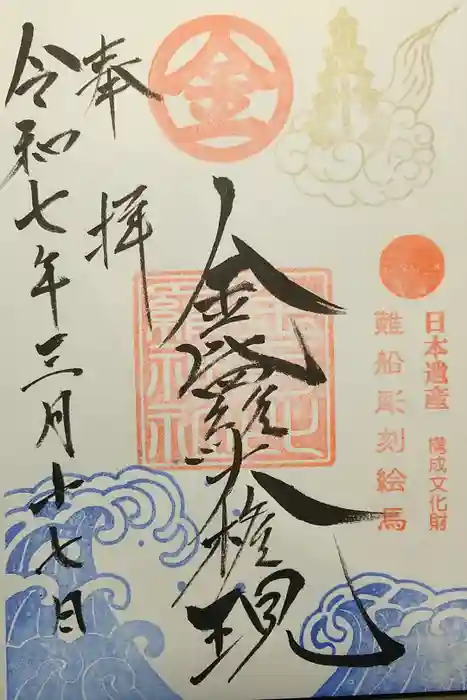 金
日本遺産 構成文化財
難船彫刻絵馬
奉拝
金毘羅大権現
令和七年三月十七日